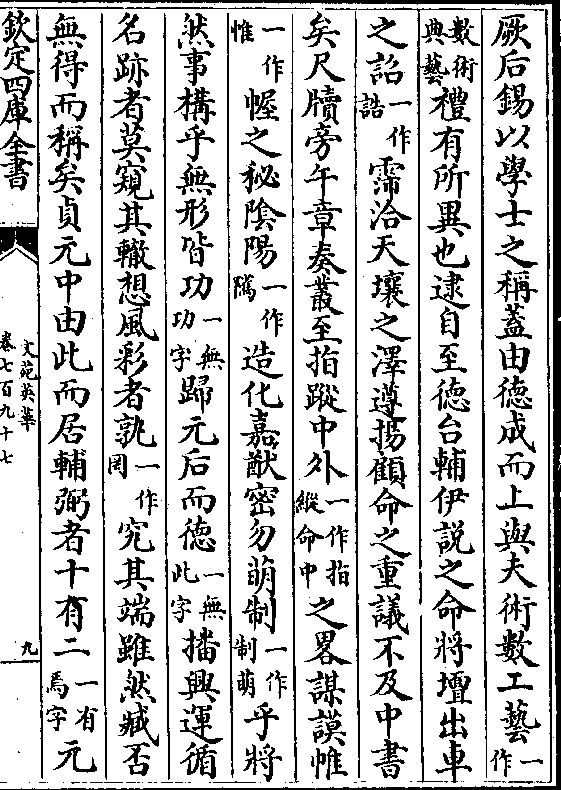 厥后錫以學士之稱蓋由德成而上與夫術數工藝一作
數術典藝禮有所異也逮自至德台輔伊説之命將壇出車
之詔一作誥霈洽天壤之澤遵揚顧命之重議不及中書
矣尺牘旁午章奏叢至指蹤中外一作指縱命中之畧謀謨帷
一作惟幄之秘陰陽一作隲造化嘉猷密勿萌制一作制萌乎將
然事構乎無形皆功一無功字歸元后而德一無此字播興運循
名跡者莫窺其轍想風彩者孰一作罔究其端雖然臧否
無得而稱矣貞元中由此而居輔弼者十有二一有焉字元
欽定四庫全書
文苑英華
卷七百九十七
九